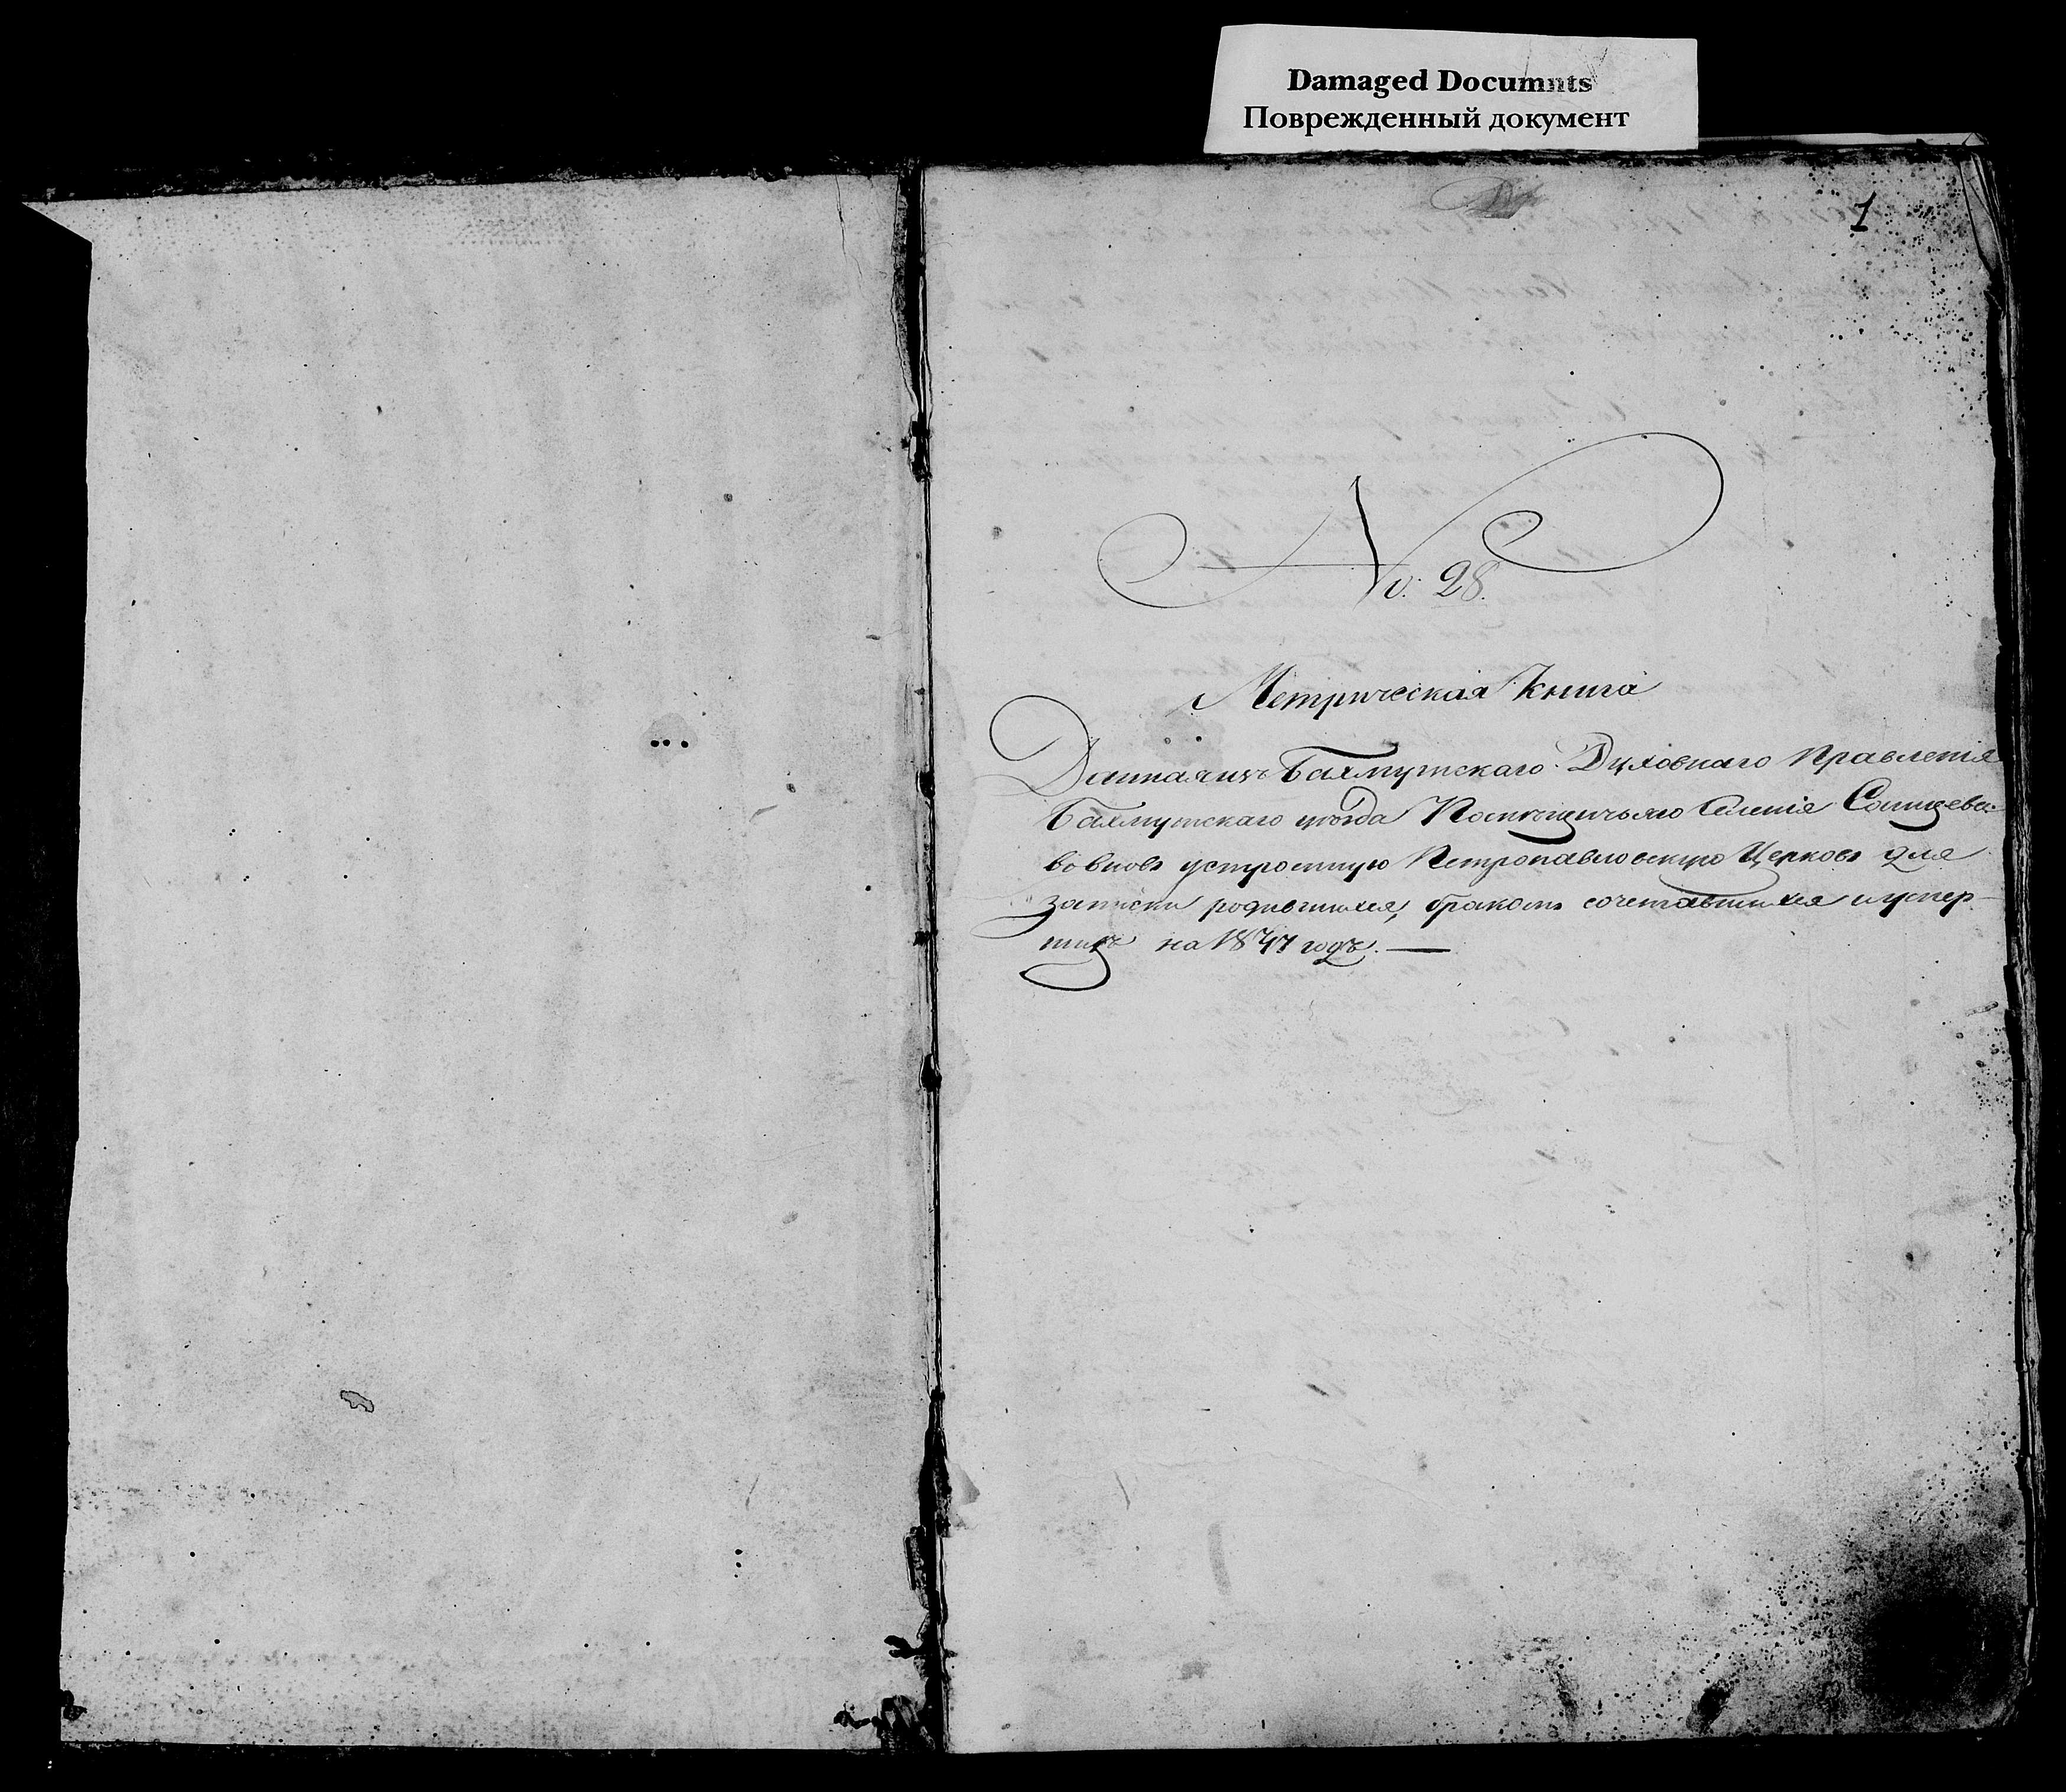 Damaged Documnts
Поврежденный документ
1
No: 28.
Метрическая Книга
Данная изъ Бахмутскаго Духовнаго Правленія
Бахмутскаго уѣзда Помѣщичьяго Селенія Сонцева
во вновь устроенную Петропавловскую Церковь для
записки родившихся, бракомъ сочетавшихся и умер-
шихъ на 1847 годъ. —